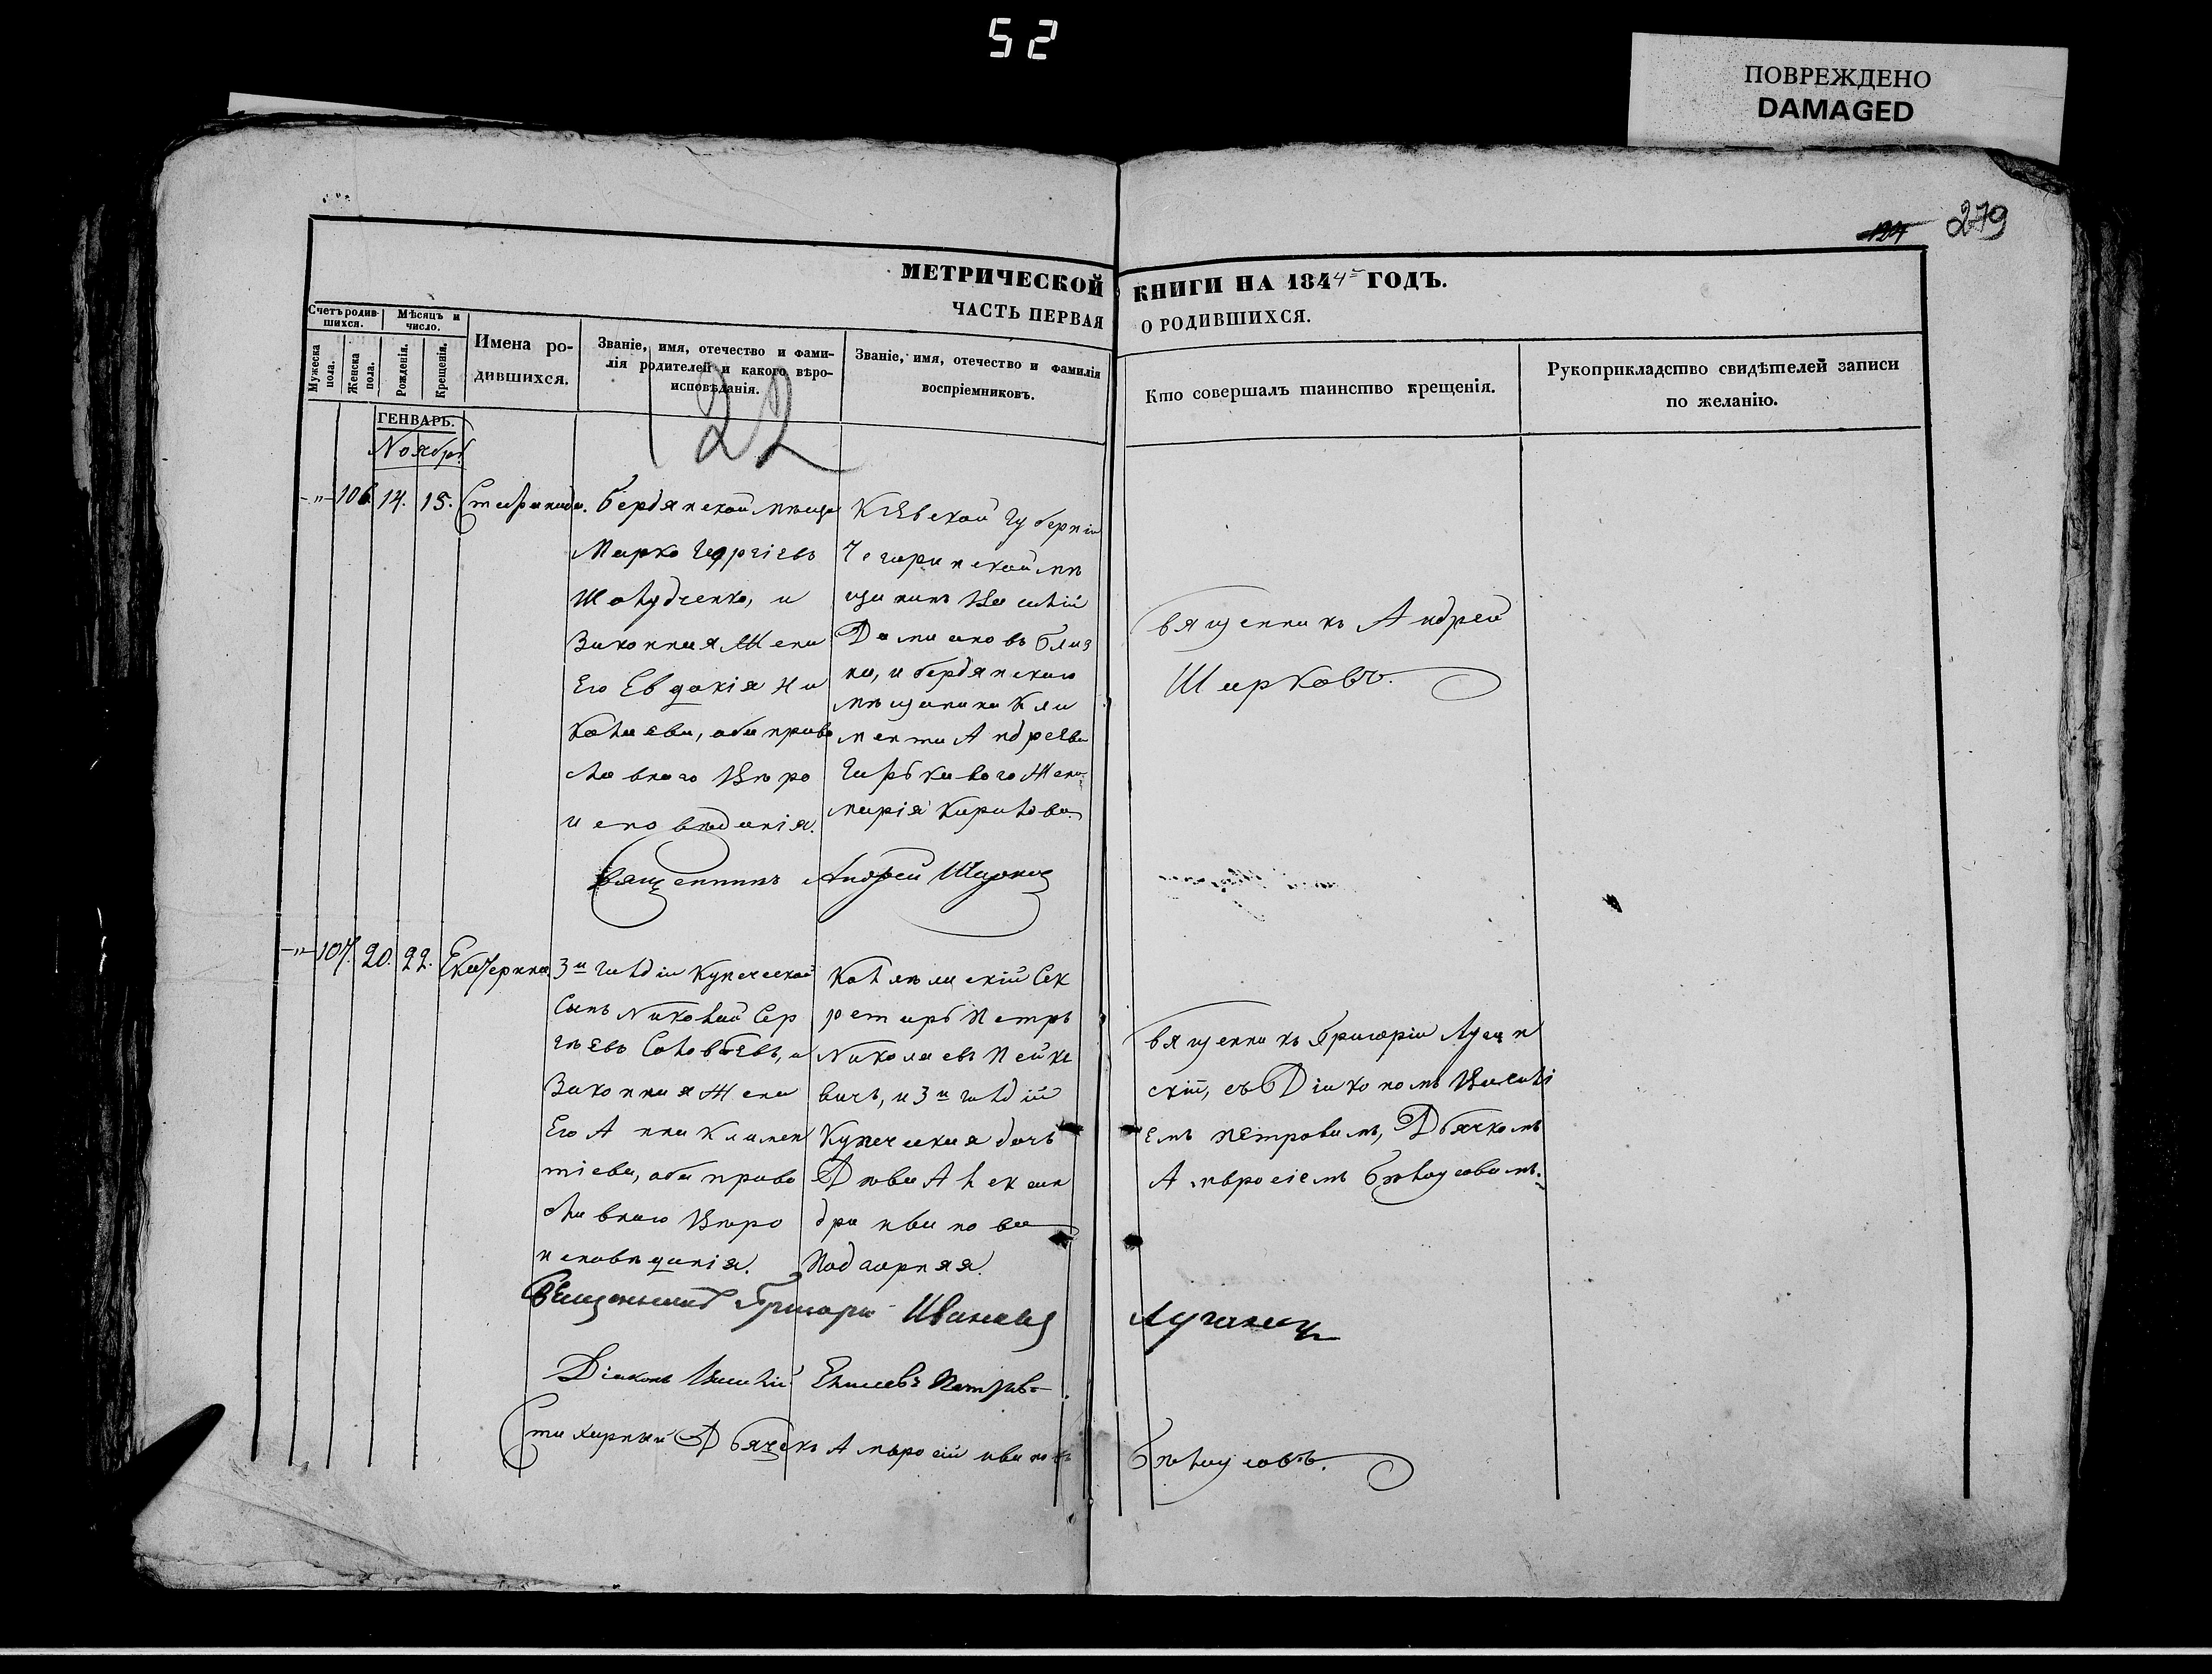 52
ПОВРЕЖДЕНО
DAMAGED
279
МЕТРИЧЕСКОЙ КНИГИ НА 1844 ГОДЪ.
ЧАСТЬ ПЕРВАЯ О РОДИВШИХСЯ.
Счетъ родив-
шихся.
Мужеска пола.
Женска пола.
Мѣсяцъ и
число.
Рожденія.
Крещенія.
Имена ро-
дившихся.
Званіе, имя, отечество и фами-
лія родителей и какого вѣро-
исповѣданія.
Званіе, имя, отечество и фамилія
воспріемниковъ.
Кто совершалъ таинство крещенія.
Рукоприкладство свидѣтелей записи
по желанію.
122
ГЕНВАРЬ.
Ноябрь
-"- 106. 14. 15. Стефанида.
Бердянской мѣща
Марко Георгіевъ
Шолудченко, и
Законная Жена
Его Евдокія Ни
колаева, оба право
славнаго Вѣро
исповѣданія.
Кіевской Губерніи
Чегиринской мѣ
щанинъ Василій
Даміановъ Близ
но, и Бердянскаго
мѣщанина Кли
мента Андреева
Жена
Марія Карпова
Священникъ Андрей
Шарковъ.
Священникъ Андрей Шарковъ
-"- 107. 20. 22. Екатерина
3й гильдіи Купеческой
Сынъ Николай Сер
гѣевъ Соловьевъ, и
Законная Жена
Его Анна Климен
тіева, оба право
славнаго Вѣро
исповѣданія.
Коллежскій Сек
ретарь Петръ
Николаевъ
вичъ, и 3й гильдій
Купеческая дочь
Дѣва Алексан
дра Иванова
Подгорняя.
Священникъ Григорій Лучан
скій, съ Діакономъ Василі
емъ Петровымъ, Дьячкомъ
Амвросіемъ Бѣлоусовымъ.
Священникъ Григорій Ивановъ Лучанск
Діаконъ Василій Елисеевъ Петровъ
Стихарный Дьячекъ Амвросій Ивановъ Бѣлоусовъ.